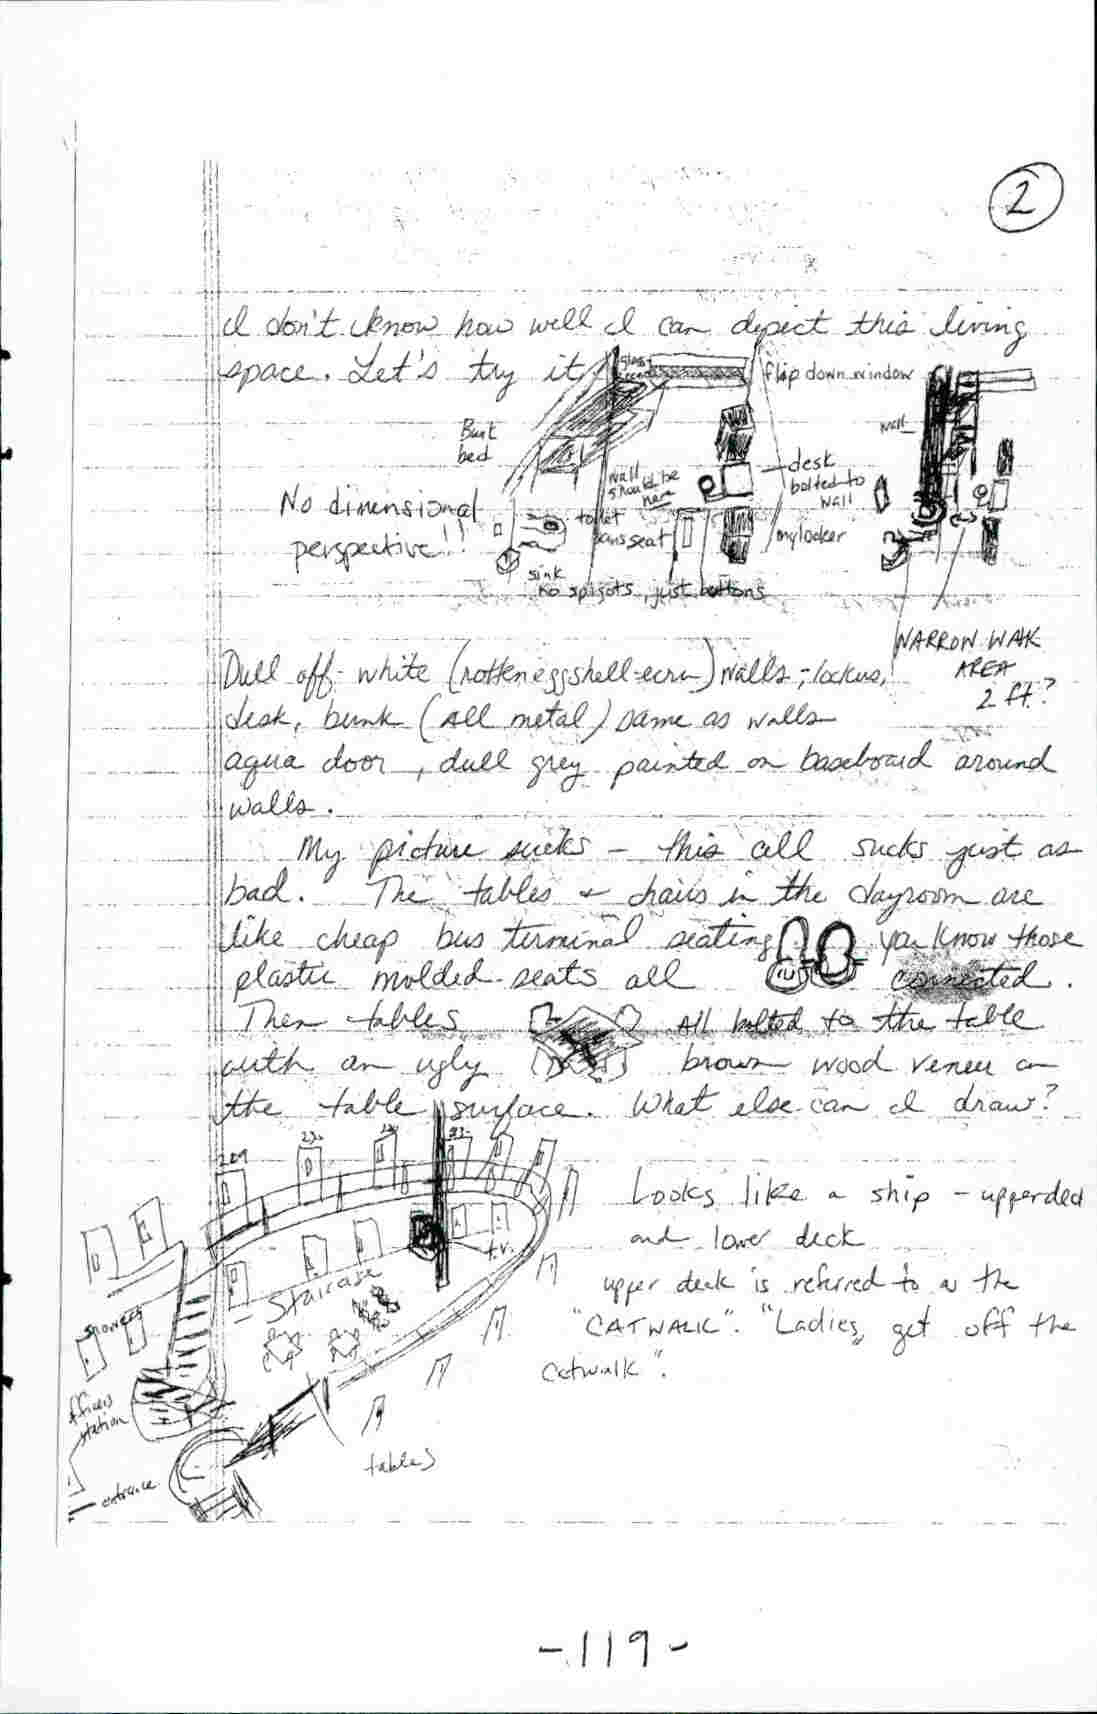 2
I don't know how well I can depict this living
space. Let's try it
glass
flip down window
Bunk
bed
wall
should be
here
desk
bolted to
wall
wall
No dimensional
perspective!!
toilet
sans seat
my locker
sink
no spigots, just buttons
NARROW WALK
AREA
2 ft.?
Dull off-white (rotten eggshell-ecru) walls; lockers,
desk, bunk (All metal) same as walls
aqua door, dull grey painted on baseboard around
walls.
My picture sucks - this cell sucks just as
bad. The tables + chairs in the dayroom are
like cheap bus terminal seating you know those
plastic molded seats all connected.
Then tables All bolted to the table
with an ugly brown wood veneer on
the table surface. What else can I draw?
Looks like a ship - upperdeck
and lower deck
upper deck is referred to as the
"CATWALK". "Ladies, get off the
catwalk".
229
t.v.
Staircase
showers
officers
station
entrance
tables
-119-